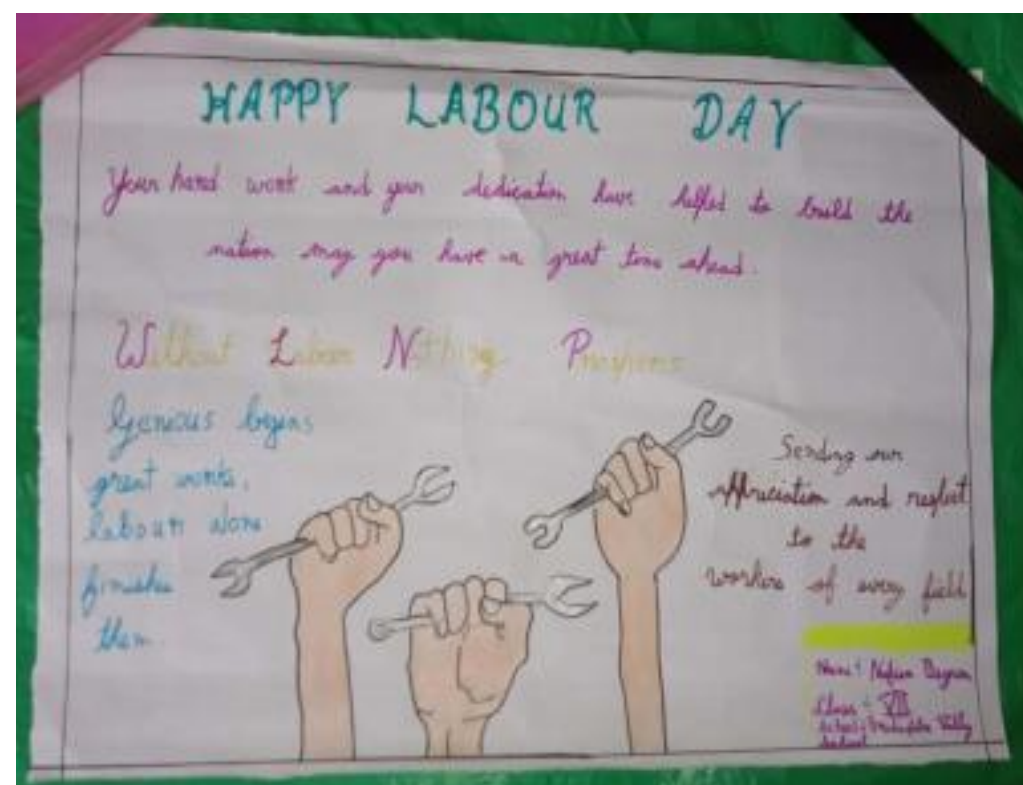 HAPPY LABOUR DAY
Your hard work and your dedication have helped to build the
nation may you have a great time ahead.
Without Labour Nothing Prospers
Genious begins
great works,
labour alone
finishes
them.
Sending our
appreciation and
to the
workers of every field
Name: Begum
Class: VII
School: Valley
School